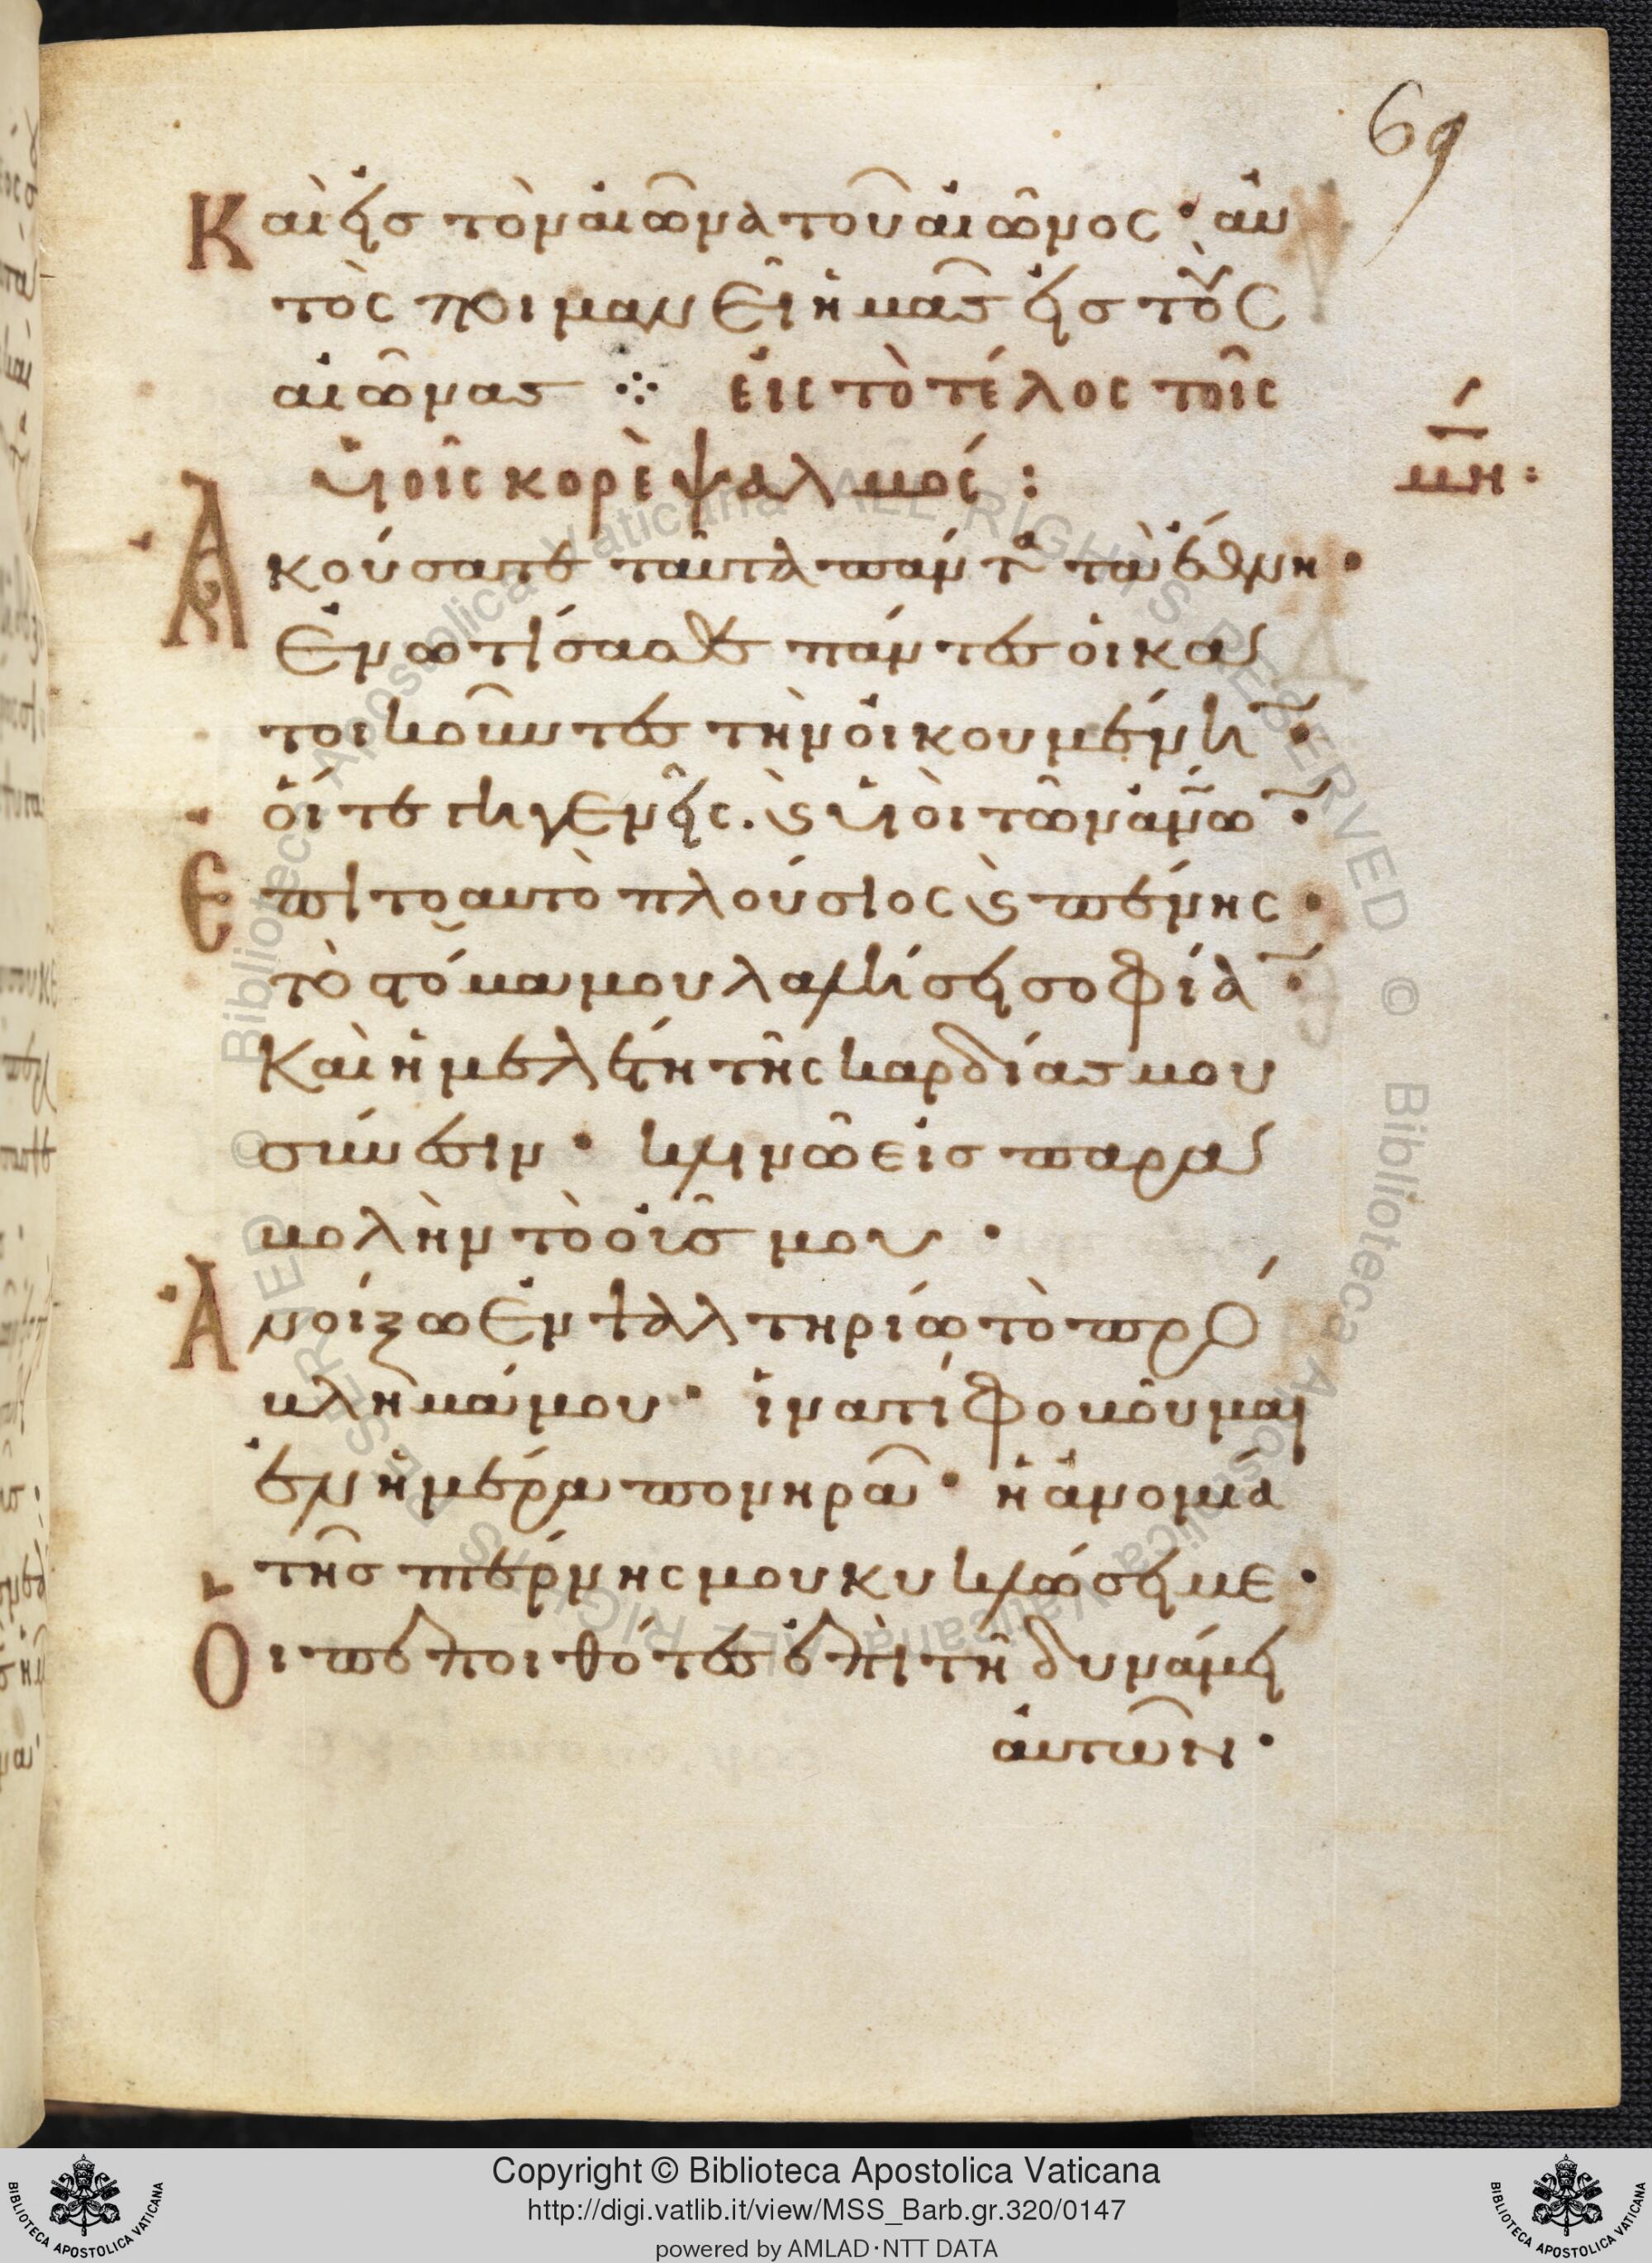 69
Καὶ εἰς τὸν αἰῶνα τοῦ αἰῶνος · αὐ
τὸς ποιμανεῖ ἡμᾶς εἰς τοὺς
αἰῶνας ⁘ εἰς τὸ τέλος τοῖς
υἱοῖς κορὲ ψαλμός :
μη :
Ἀκούσατε ταῦτα πάντα τὰ ἔθνη ·
Ἐνωτίσασθε πάντες οἱ κα
τοικοῦντες τὴν οἰκουμένην ·
οἵ τε γηγενεῖς . ϗ υἱοὶ τῶν ἀνων ·
Ἐπὶ τὸ αυτὸ πλούσιος ϗ πένης ·
τὸ στόμα μου λαλήσει σοφίαν ·
Καὶ ἡ μελέτη τῆς καρδίας μου
σύνεσιν · κλινῶ εἰς παρα
βολὴν τὸ οὖς μου ·
Ἀνοίξω ἐν ψαλτηρίω τὸ πρό
βλημά μου · ἱνατί φοβοῦμαι
ἐν ἡμέρα πονηρᾶ · ἡ ἀνομία
τῆς πτέρνης μου κυκλώσει με ·
Οἱ πεποιθότες ἐπὶ τῆ δυνάμει
αὐτῶν ·
© Biblioteca Apostolica Vaticana ALL RIGHTS RESERVED © Biblioteca Apostolica Vaticana ALL RIGHTS RESERVED
Copyright © Biblioteca Apostolica Vaticana
http://digi.vatlib.it/view/MSS_Barb.gr.320/0147
powered by AMLAD·NTT DATA
BIBLIOTECA APOSTOLICA VATICANA
BIBLIOTECA APOSTOLICA VATICANA